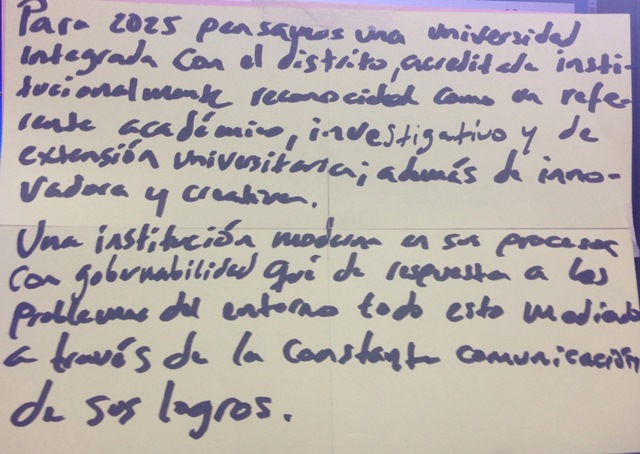 Para 2025 pensamos una universidad
integrada con el distrito, acreditada insti-
tucionalmente reconocidad como un refe-
rente académico, investigativo y de
extensión universitaria; además de inno-
vadora y creativa.
Una institución moderna en sus procesos
con gobernabilidad qué de respuesta a los
problemas del entorno todo esto mediado
a través de la constante comunicación
de sus logros.